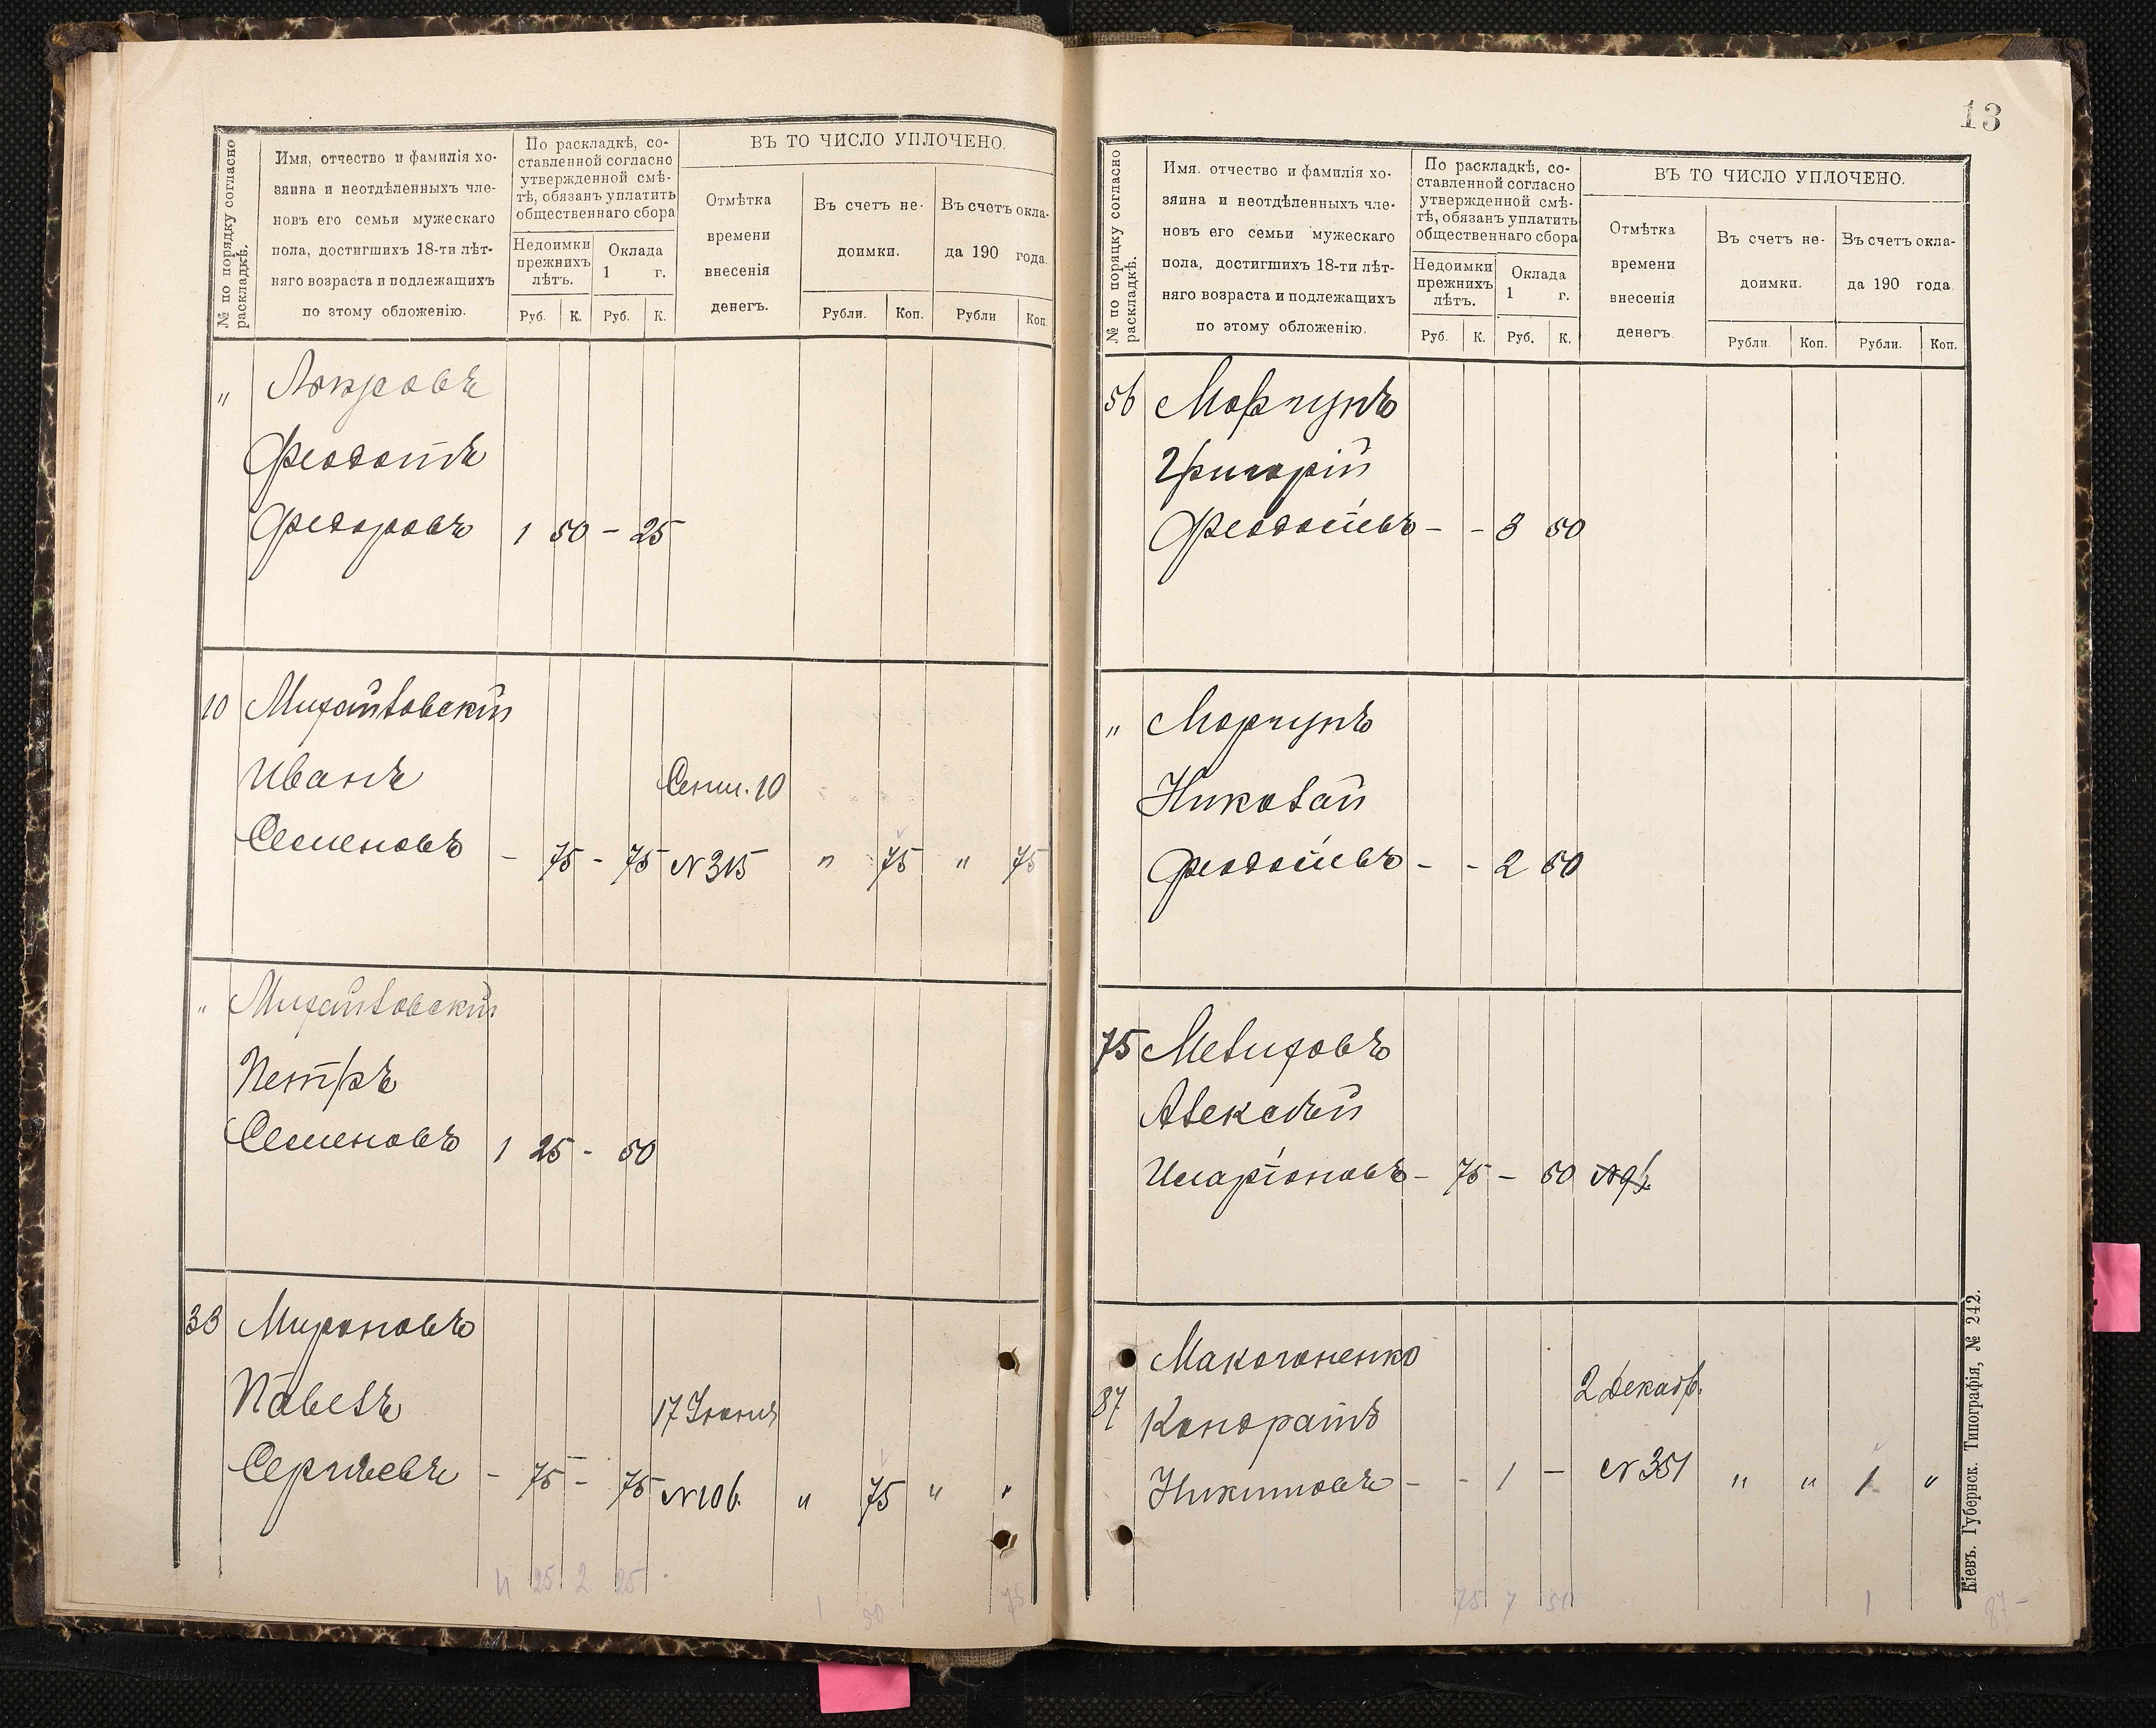 № по порядку согласно раскладкѣ.
Имя, отчество и фамилія хо-
зяина и неотдѣленныхъ чле-
новъ его семьи мужескаго
пола, достигшихъ 18-ти лѣт-
няго возраста и подлежащихъ
по этому обложенію.
По раскладкѣ, со-
ставленной согласно
утвержденной смѣ-
тѣ, обязанъ уплатить
общественнаго сбора
Недоимки
прежнихъ
лѣтъ.
Оклада
1 г.
Руб. К. Руб. К.
ВЪ ТО ЧИСЛО УПЛОЧЕНО.
Отмѣтка
времени
внесенія
денегъ.
Въ счетъ не-
доимки.
Въ счетъ окла-
да 190 года.
Рубли. Коп. Рубли Коп.
"
Феодотъ
Федоровъ 1 50 - 25
10 Михайловскій
Иванъ Сент. 10
Семеновъ - 75 - 75 № 315 " 75 " 75
" Михайловскій
Петръ
Семеновъ 1 25 - 50
33 Мироновъ
Павелъ 17 Іюня
Сергѣевъ - 75 - 75 № 106. " 75 " "
4 25 2 25
1 50 75
13
№ по порядку согласно раскладкѣ.
Имя. отчество и фамилія хо-
зяина и неотдѣленныхъ чле-
новъ его семьи мужескаго
пола, достигшихъ 18-ти лѣт-
няго возраста и подлежащихъ
по этому обложенію.
По раскладкѣ, со-
ставленной согласно
утвержденной смѣ-
тѣ, обязанъ уплатить
общественнаго сбора
Недоимки
прежнихъ
лѣтъ.
Оклада
1 г.
Руб. К. Руб. К.
ВЪ ТО ЧИСЛО УПЛОЧЕНО.
Отмѣтка
времени
внесенія
денегъ.
Въ счетъ не-
доимки.
Въ счетъ окла-
да 190 года.
Рубли. Коп. Рубли. Коп.
56 Моргунъ
Григорій
Феодосіевъ - - 3 50
" Моргунъ
Николай
Феодосіевъ - - 2 50
75 Мелиховъ
Алексѣй
Иларіоновъ - 75 - 50
Макогоненко
87 Кондратъ 2 Декабр.
Никитовъ - - 1 - № 351 " " 1 "
75 7 50 1 87 -
Кіевъ. Губернск. Типографія, № 242.